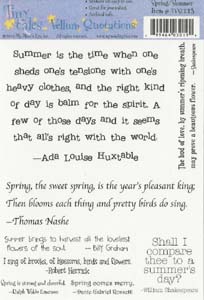 Tiny Tales Vellum Quotations
Spring/Summer
Summer is the time when one
sheds one's tensions with one's
heavy clothes, and the right kind
of day is balm for the spirit. A
few of those days and it seems
that all's right with the world.
—Ada Louise Huxtable
The bud of love, by summer's ripening breath,
may prove a beauteous flower.
—Shakespeare
Spring, the sweet spring, is the year's pleasant king;
Then blooms each thing and pretty birds do sing.
—Thomas Nashe
Summer brings to harvest all the loveliest
flowers of the soul. —Billy Graham
I sing of brooks, of blossoms, birds and flowers.
-Robert Herrick
Spring is strong and cheerful.
-Ralph Waldo Emerson
Spring comes merry,
-Dante Gabriel Rossetti
Shall I
compare
thee to a
summer's
day?
-William Shakespeare